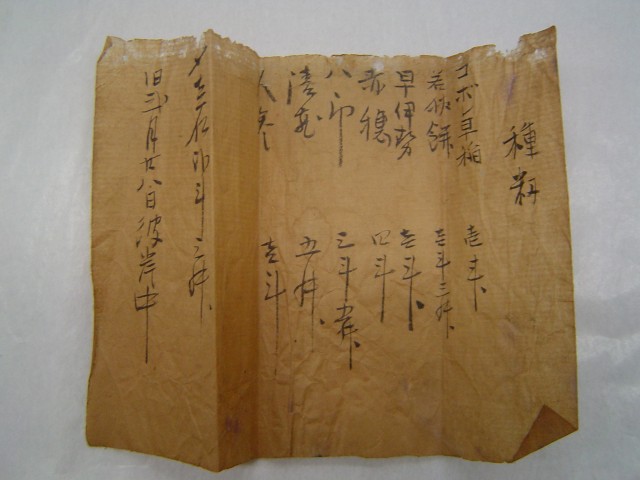 種籾
コボ早稲 壱斗、
若狭餅 壱斗三升、
早伊勢 壱斗、
赤穂 四斗
八印 三斗五升、
五升、
壱斗
斗三升、
旧弐月廿八日彼岸中